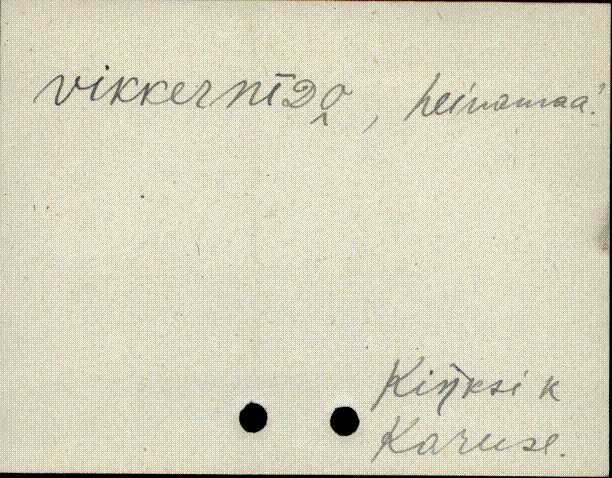 vikkernīDo̭, heinamaa.
Kiŋksi k
Karuse.